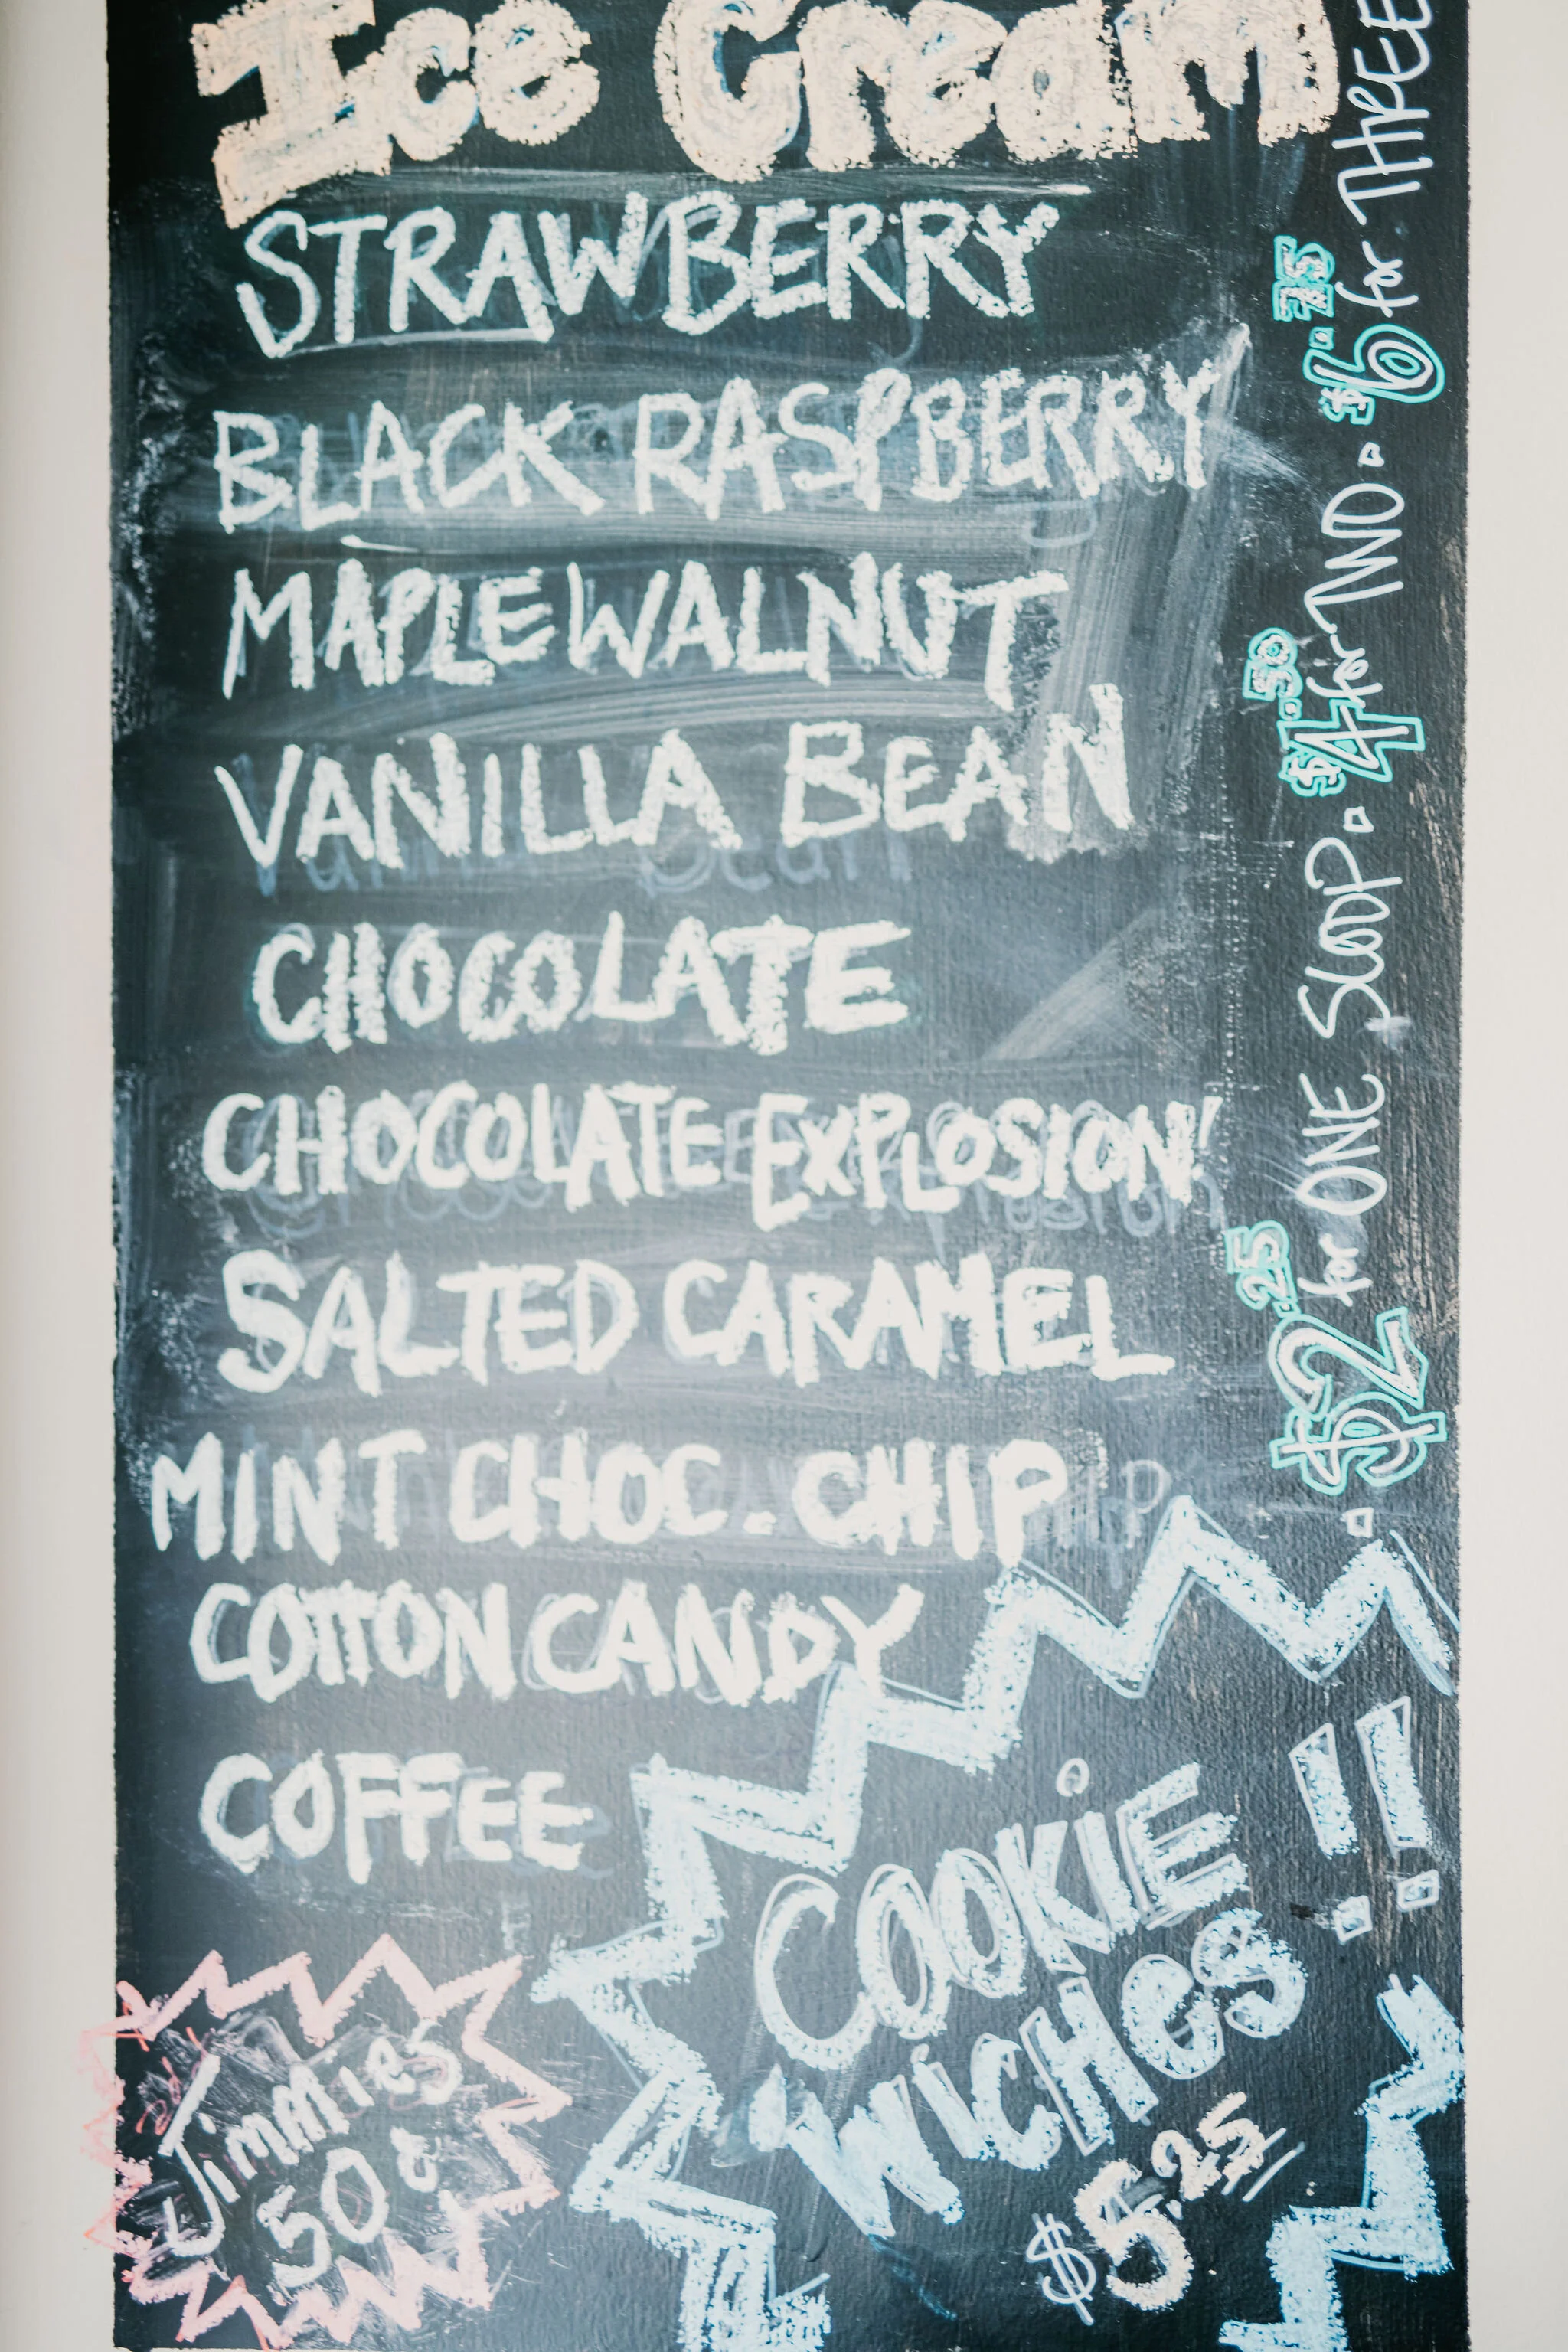 Ice Cream
STRAWBERRY
BLACK RASPBERRY
MAPLE WALNUT
VANILLA BEAN
CHOCOLATE
CHOCOLATE EXPLOSION!
SALTED CARAMEL
MINT CHOC. CHIP
COTTON CANDY
COFFEE
$2.25 for ONE SCOOP. $4.50 for TWO. $6.75 for THREE
COOKIE
'WICHES !!
$5.25
Jimmies
50¢